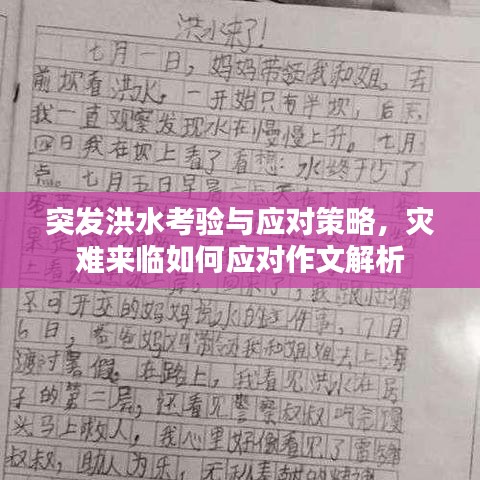 洪水来了!
七月一日,妈妈带领我和姐。去
前坝看洪水。一开始只有半坝,后来
我一直观察发现水在慢慢上升。七月
四日我在坝上看了看想:水终于少了
点。七月五日早晨
突发洪水考验与应对策略,灾
难来临如何应对作文解析
不可开交的妈妈说水的 件事,7月
6日,爸爸妈妈带领我和姐姐去上海
渡过暑假。在路上,我看见洪水在房
子的第二层,还看见警察叔叔吃完馒
头马上救人,我心里好像看见了雷锋
叔叔,助人为乐,无私奉献的精神